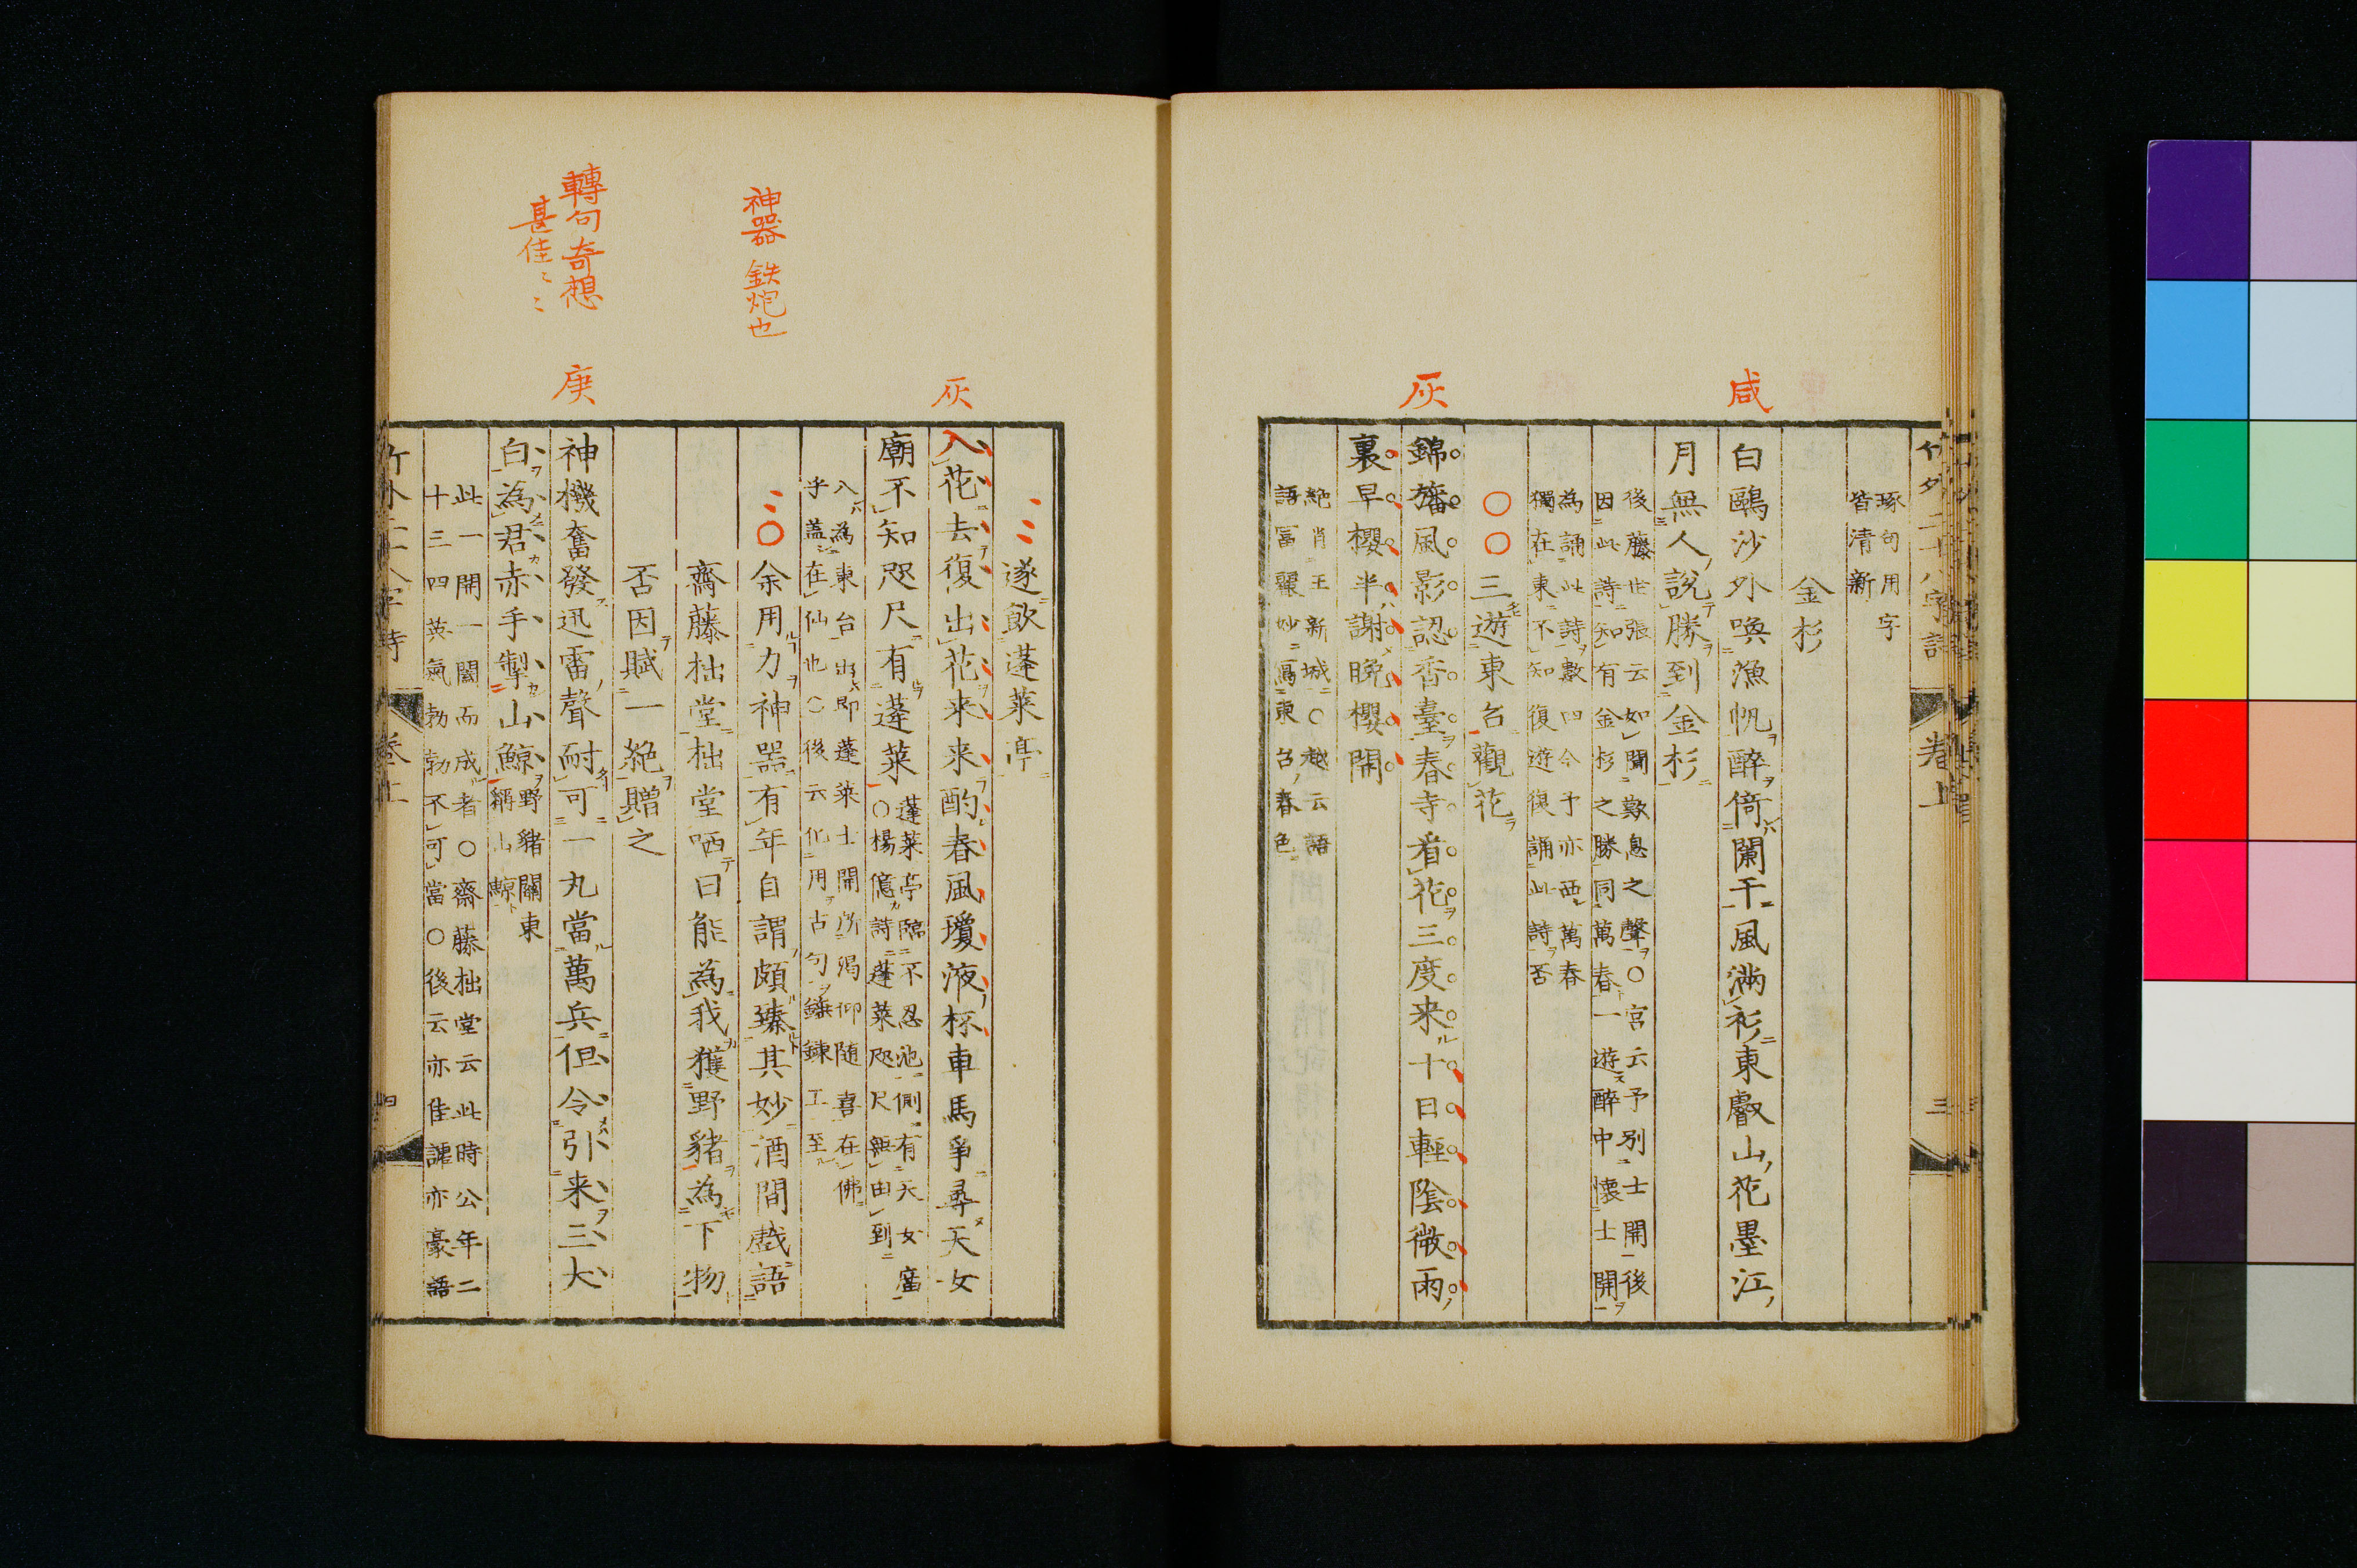 琢句用字
皆清新
金杉
咸
白鷗沙外喚漁帆醉倚闌干風滿衫東叡山花墨江
月無人說勝到金杉
後藤世張云如聞歎息之聲○宮云予別士開後
因此詩知有金杉之勝同萬春一遊醉中懷士開
為誦此詩數四今予亦西萬春
獨在東不知復遊復誦此詩否
○○三遊東台觀花
灰
錦旛風影認香臺春寺看花三度来十日輕陰微雨
裏早櫻半謝晚櫻開
絕肖王新城○越云語
語冨麗妙寫東台春色
遂飲蓬萊亭
灰
入花去復出花来来酌春風瓊液杯車馬爭尋天女
廟不知咫尺有蓬萊
蓬萊亭臨不忍池側有天女廟
○楊億詩蓬萊咫尺無由到
入為東台出即蓬萊士開所渴仰随喜在佛
乎蓋在仙也○後云化用古句錘鍊工至
○余用力神器有年自謂頗臻其妙酒間戲語
神器鉄炮也
齋藤拙堂拙堂哂曰能為我獲野豬為下物
否因賦一絕贈之
庚
神機奮發迅雷聲耐可一丸當萬兵但令引来三大
轉句奇想
甚佳〻〻
白為君赤手掣山鯨
野豬關東
稱山鯨
此一開一闔而成者○齋藤拙堂云此時公年二
十三四英氣勃勃不可當○後云亦佳謔亦豪語
卷上
三
四